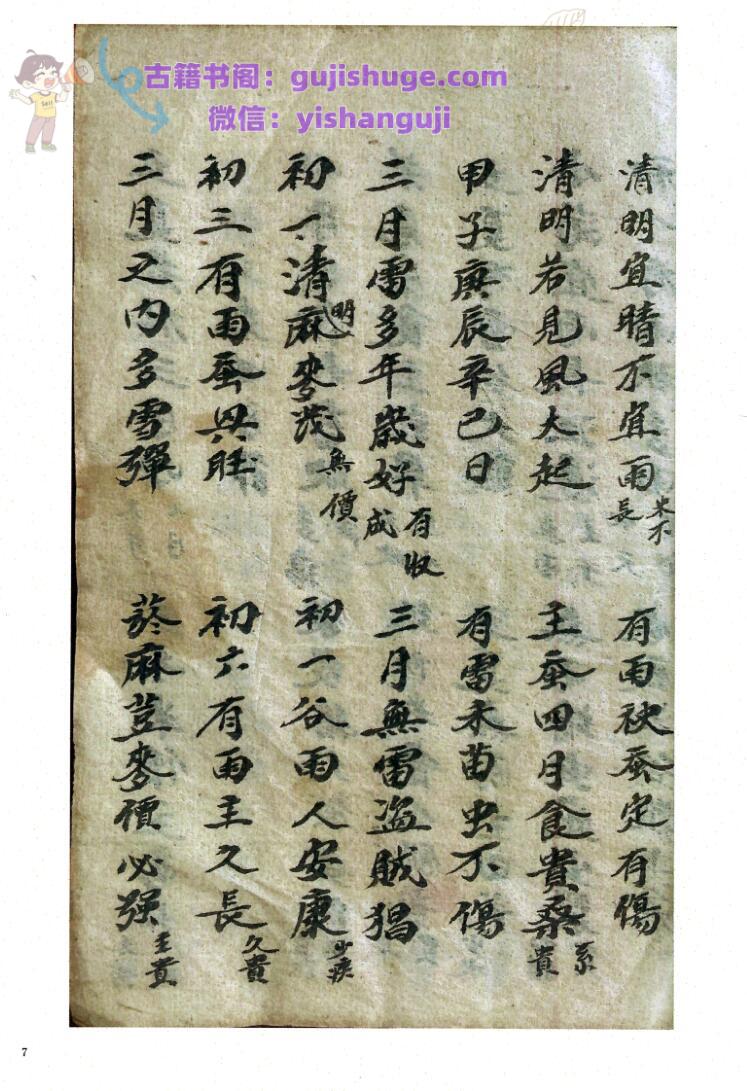 古籍书阁：gujishuge.com
微信：yishanguji
Sell
清明宜晴不宜雨 米不長 有雨秧蚕定有傷
清明若見風大起 王蚕四月食貴桑 系貴
甲子庚辰辛巳日 有雷禾苗虫不傷
三月雷多年歲好 有收成 三月無雷盜賊猖
初一清明麻麥茂 無價 初一谷雨人安康 少疾
初三有雨蚕興旺 初六有雨主久長 久貴
三月之内多雪彈 麻荳麥價必强 主貴
7